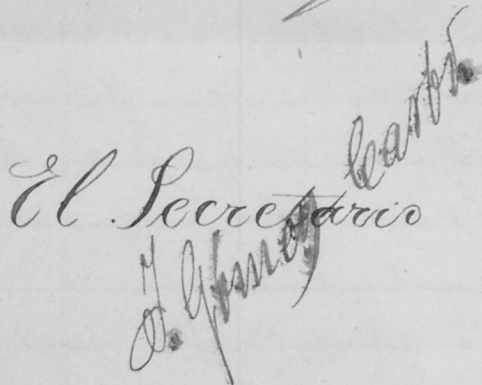 El Secretario
J. Gómez Carbó.